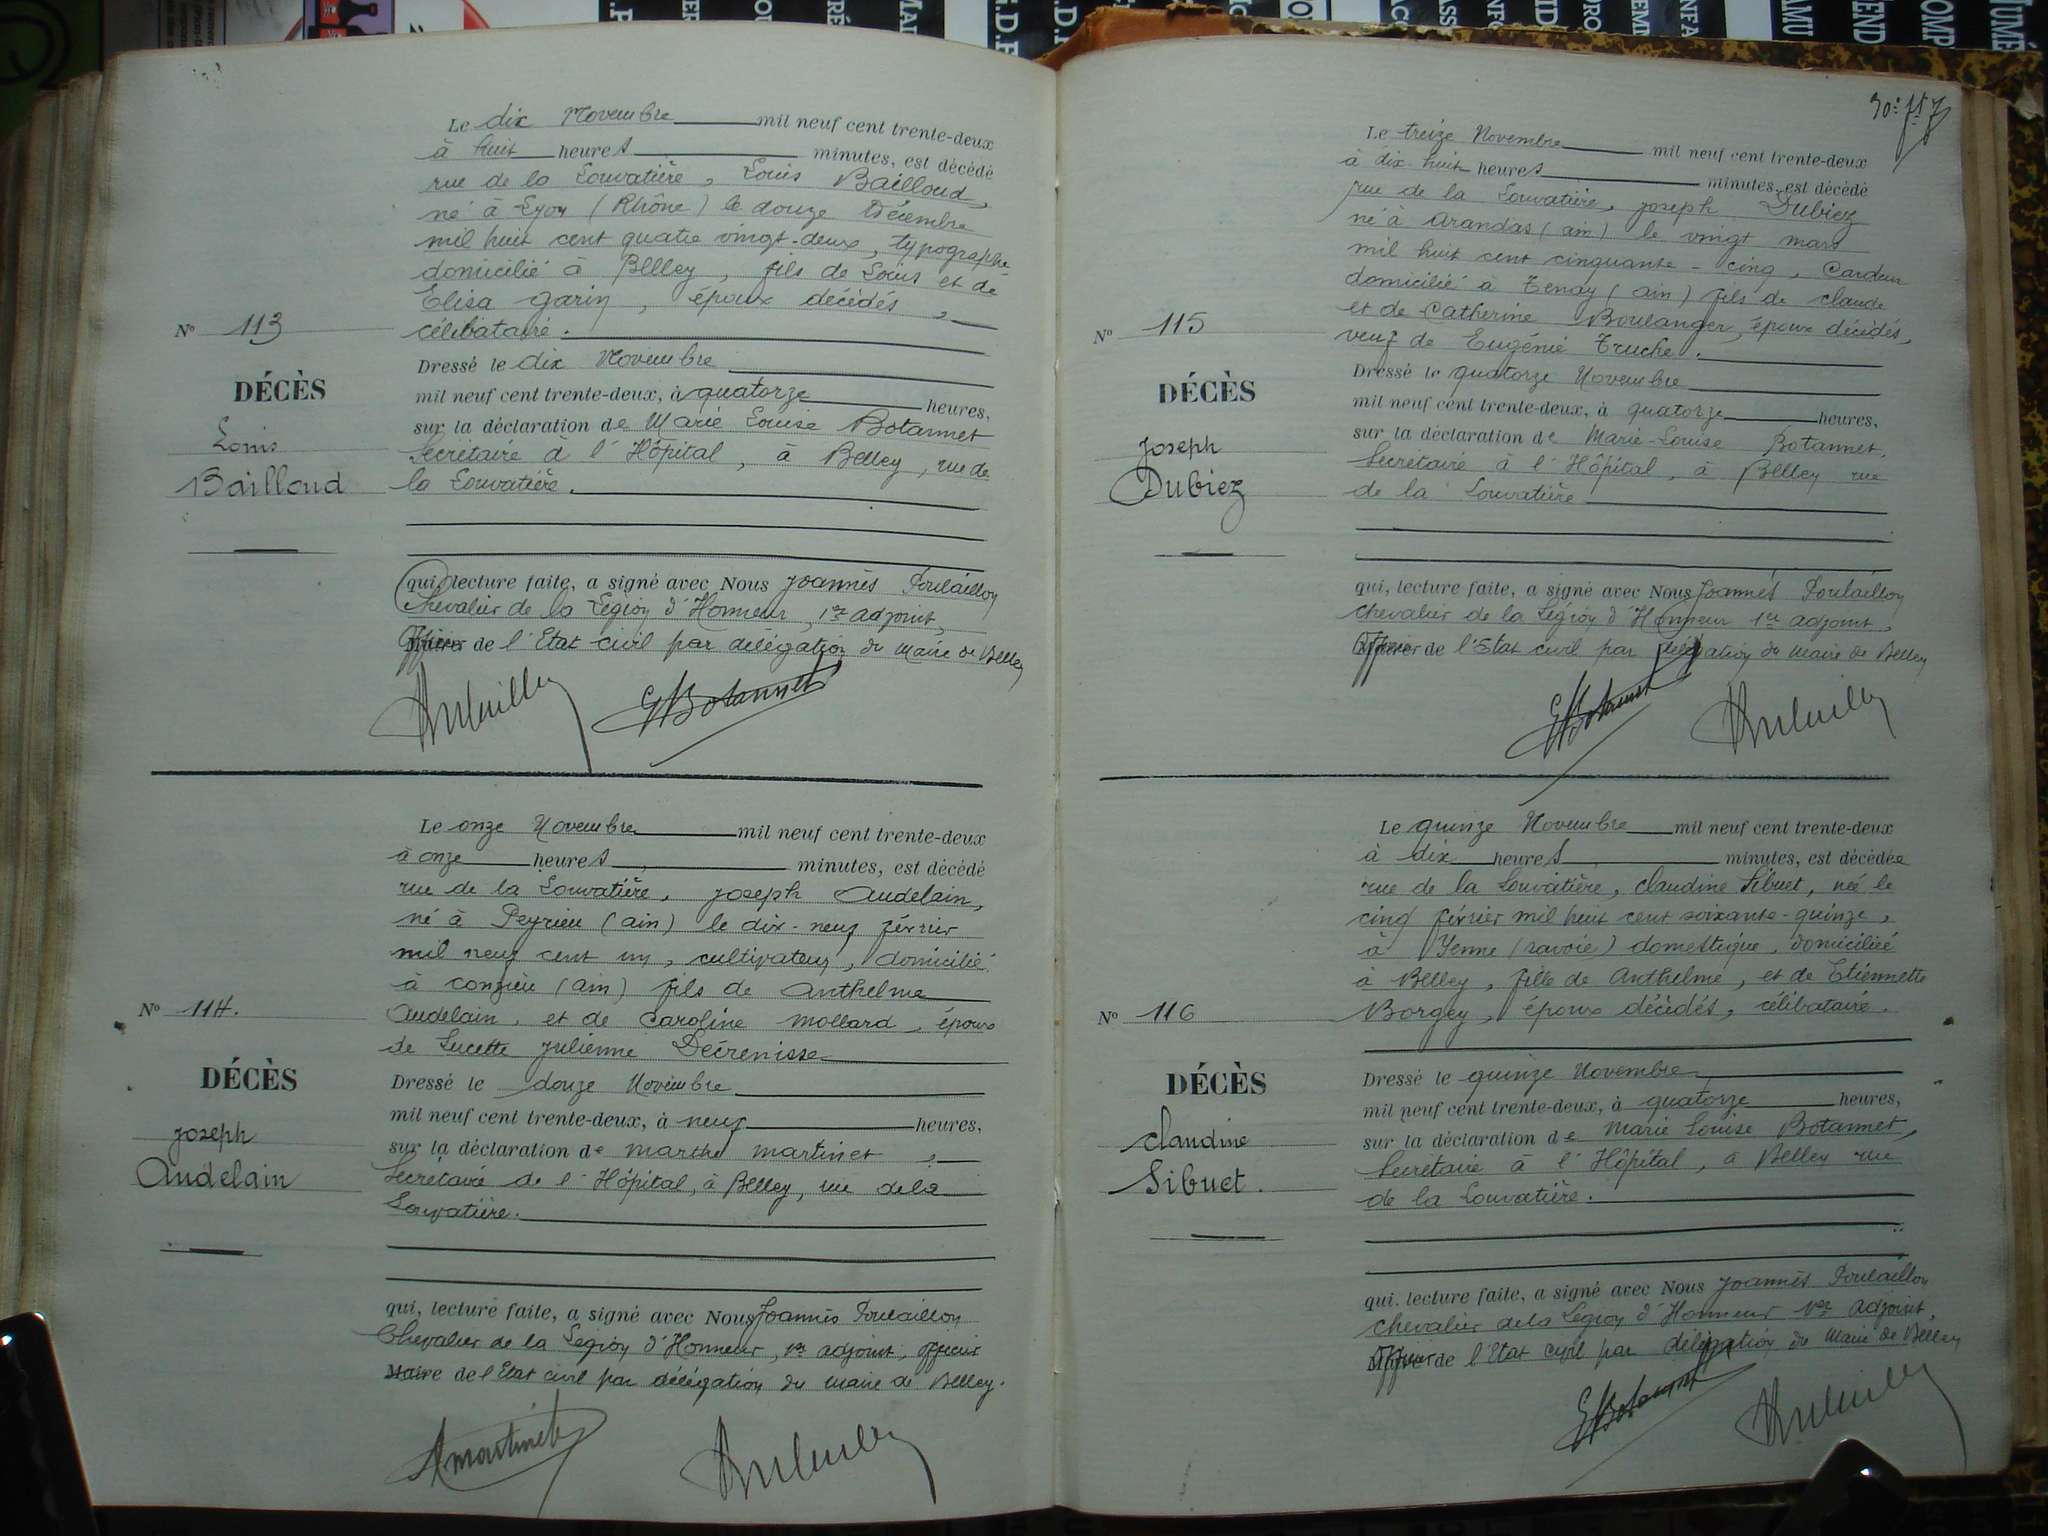 Le dix Novembre mil neuf cent trente-deux
à huit heures minutes, est décédé
rue de la Louvatière, Louis Bailloud,
né à Lyon (Rhône) le douze Décembre
mil huit cent quatre vingt-deux, typographe
domicilié à Belley, fils de Louis et de
Elisa Garin, époux décédés,
célibataire.
Nº 113
DÉCÈS
Louis
Bailloud
Dressé le dix Novembre
mil neuf cent trente-deux, à quatorze heures,
sur la déclaration de Marie Louise Botannet
Secrétaire à l'Hôpital, à Belley, rue de
la Louvatière.
qui, lecture faite, a signé avec Nous Joannès Poulaillon
Chevalier de la Légion d'Honneur, 1er adjoint,
Officier de l'Etat civil par délégation du Maire de Belley
Botannet
Le onze Novembre mil neuf cent trente-deux
à onze heures, minutes, est décédé
rue de la Louvatière, Joseph Audelain,
né à Peyrieu (ain) le dix-neuf février
mil neuf cent un, cultivateur, domicilié
à conzieu (ain) fils de Anthelme
Audelain, et de Caroline Mollard, époux
de Lucette Julienne Décrenisse
Nº 114.
DÉCÈS
Joseph
Audelain
Dressé le douze Novembre
mil neuf cent trente-deux, à neuf heures,
sur la déclaration de Marthe Martinet,
Secrétaire de l'Hôpital, à Belley, rue de la
Louvatière.
qui, lecture faite, a signé avec Nous Joannès Poulaillon
Chevalier de la Légion d'Honneur, 1er adjoint, officier
Maire de l'Etat civil par délégation du Maire de Belley.
Martinet
30e
Le treize Novembre mil neuf cent trente-deux
à dix-huit heures minutes, est décédé
rue de la Louvatière, Joseph Dubiez
né à Arandas (ain) le vingt mars
mil huit cent cinquante-cinq, Cardeur
domicilié à Tenay (ain) fils de Claude
et de Catherine Boulanger, époux décédés,
veuf de Eugénie Truche.
Nº 115
DÉCÈS
Joseph
Dubiez
Dressé le quatorze Novembre
mil neuf cent trente-deux, à quatorze heures,
sur la déclaration de Marie-Louise Botannet,
Secrétaire à l'Hôpital, à Belley rue
de la Louvatière
qui, lecture faite, a signé avec Nous Joannès Poulaillon
Chevalier de la Légion d'Honneur 1er adjoint,
Officier de l'Etat civil par délégation du Maire de Belley
Botannet
Le quinze Novembre mil neuf cent trente-deux
à dix heures minutes, est décédée
rue de la Louvatière, Claudine Sibuet, née le
cinq février mil huit cent soixante-quinze,
à Yenne (savoie) domestique, domiciliée
à Belley, fille de Anthelme, et de Etiennette
Borgey, époux décédés, célibataire.
Nº 116
DÉCÈS
Claudine
Sibuet.
Dressé le quinze Novembre
mil neuf cent trente-deux, à quatorze heures,
sur la déclaration de Marie Louise Botannet,
Secrétaire à l'Hôpital, à Belley rue
de la Louvatière.
qui, lecture faite, a signé avec Nous Joannès Poulaillon
Chevalier de la Légion d'Honneur 1er adjoint,
Officier de l'Etat civil par délégation du Maire de Belley
Botannet